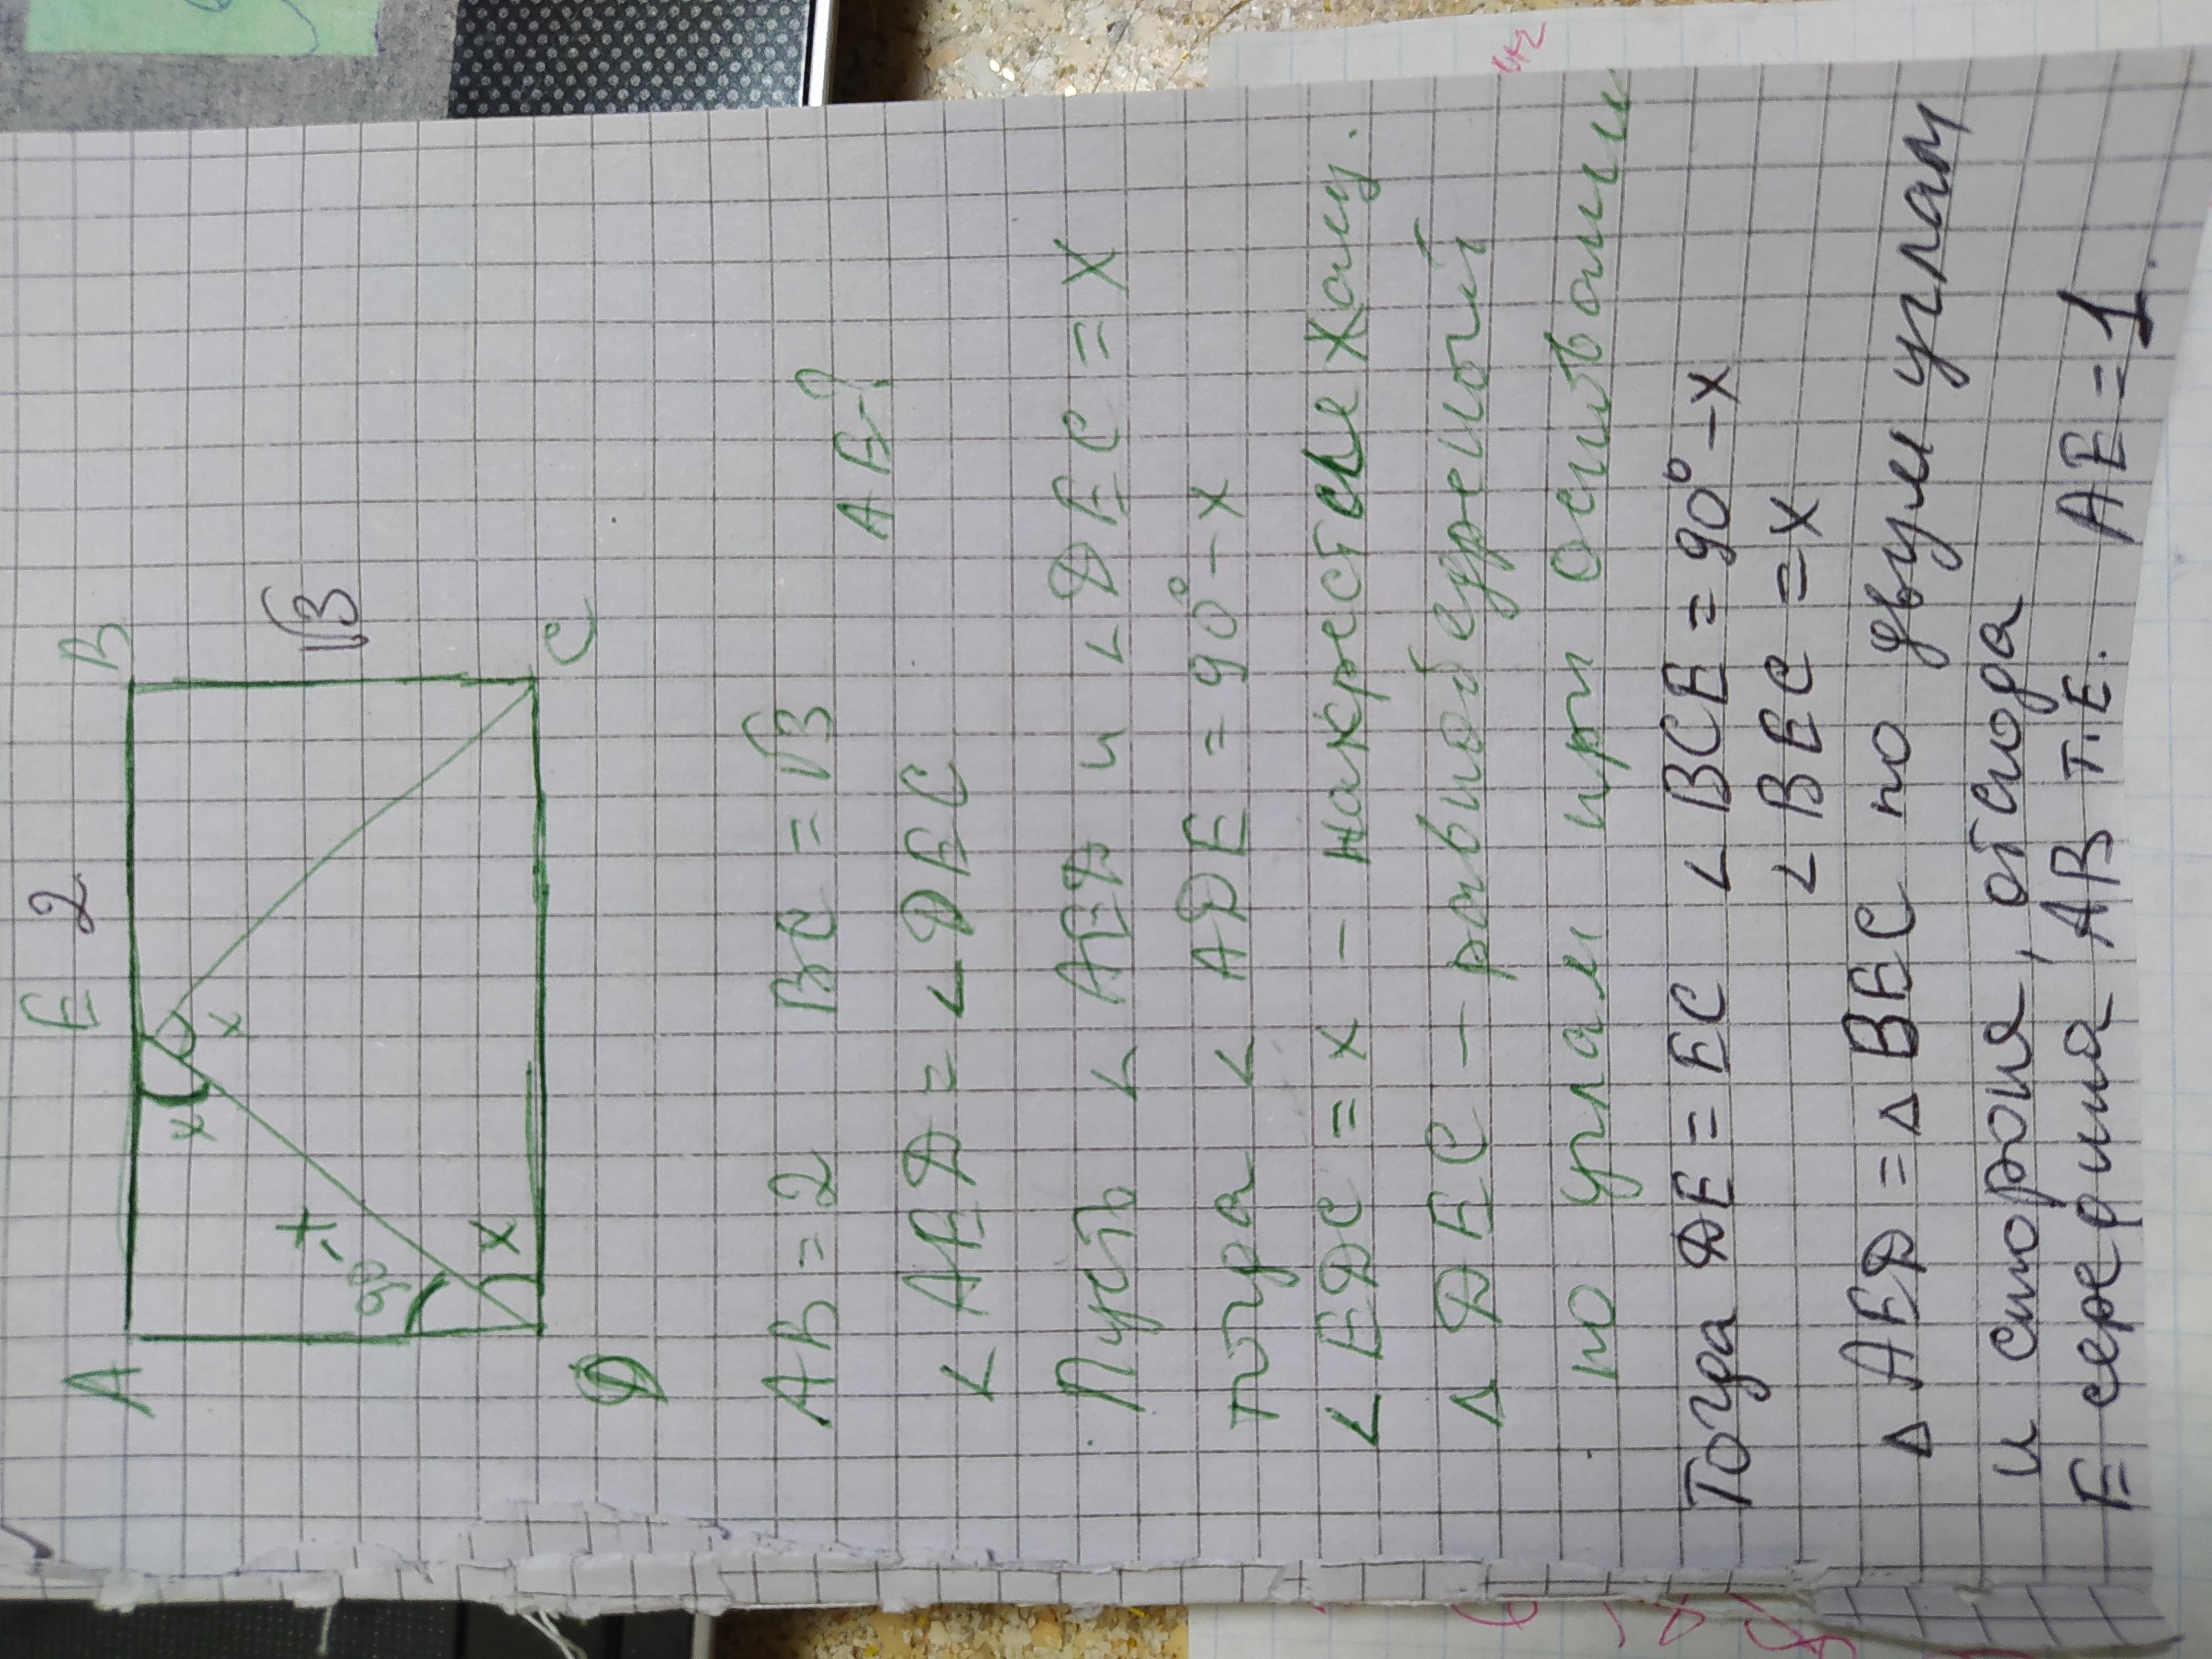 A E 2 B
x x
√3
90°-x
x
D C
AB = 2 BC = √3 AE-?
∠AED = ∠DEC
Пусть ∠AED и ∠DEC = x
тогда ∠ADE = 90°-x
∠EDC = x - накрест лежащ.
△DEC - равнобедренный
по углам при основании
Тогда DE = EC ∠BCE = 90°-x
∠BEC = x
△AED = △BEC по двум углам
и стороне, отсюда
E середина AB т.е. AE=1